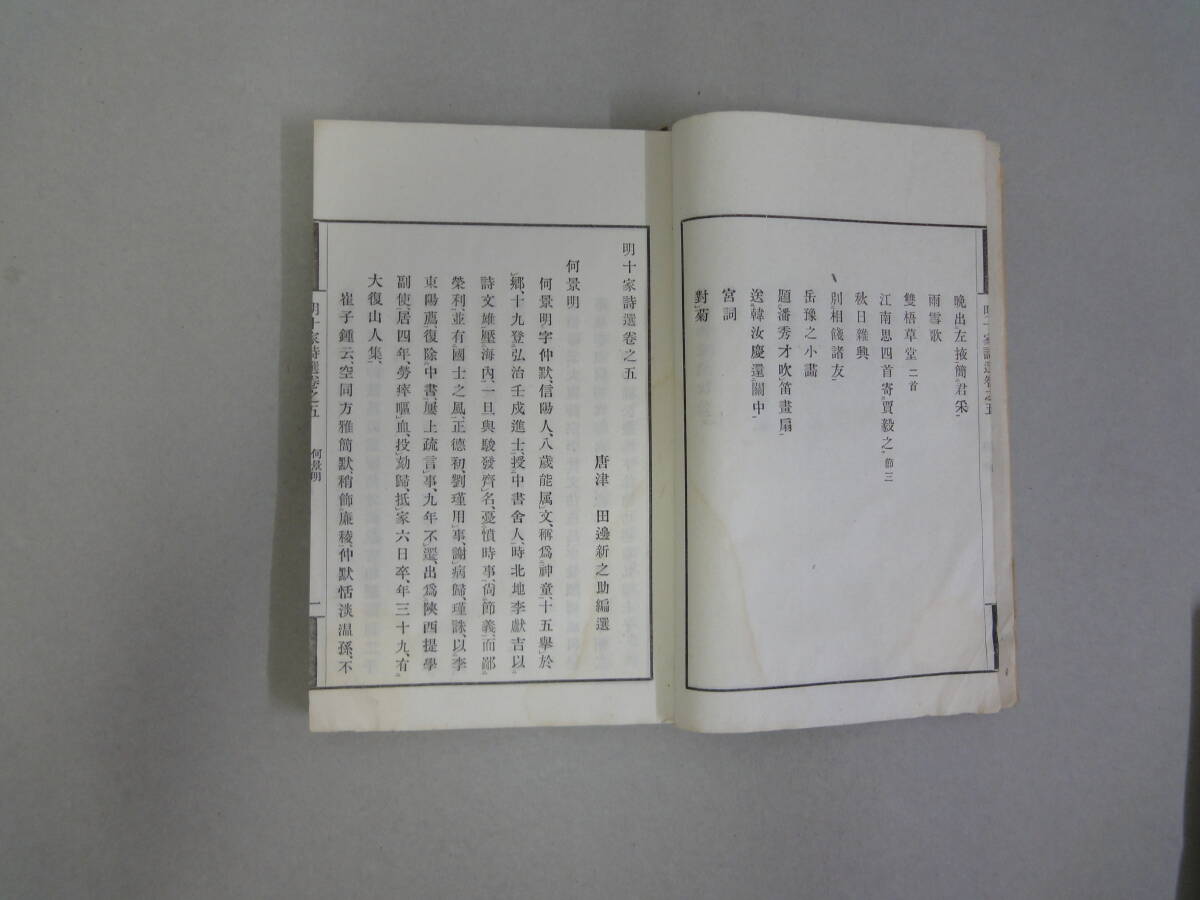 晩出左掖簡君采
雨雪歌
雙梧草堂 二首
江南思四首寄賈毅之 節三
秋日雜興
別相餞諸友
岳豫之小畵
題潘秀才吹笛畫扇
送韓汝慶還關中
宮詞
對菊
明十家詩選卷之五
明十家詩選卷之五
唐津 田邊新之助編選
何景明
何景明字仲默、信陽人、八歲能属文、稱爲神童、十五擧於
鄕、十九登弘治壬戍進士、授中書舍人、時北地李獻吉以
詩文雄壓海內、一旦與駿發齊名、憂憤時事、尙節義、而鄙
榮利、並有國士之風、正德初、劉瑾用事、謝病歸、瑾誅、以李
東陽薦、復除中書、屢上疏言事、九年不遷、出爲陝西提學
副使、居四年、勞瘁嘔血、投劾歸、抵家六日卒、年三十九、有
大復山人集、
崔子鍾云、空同方雅簡默、稍飾廉稜、仲默恬淡温孫、不
明十家詩選卷之五 何景明 一